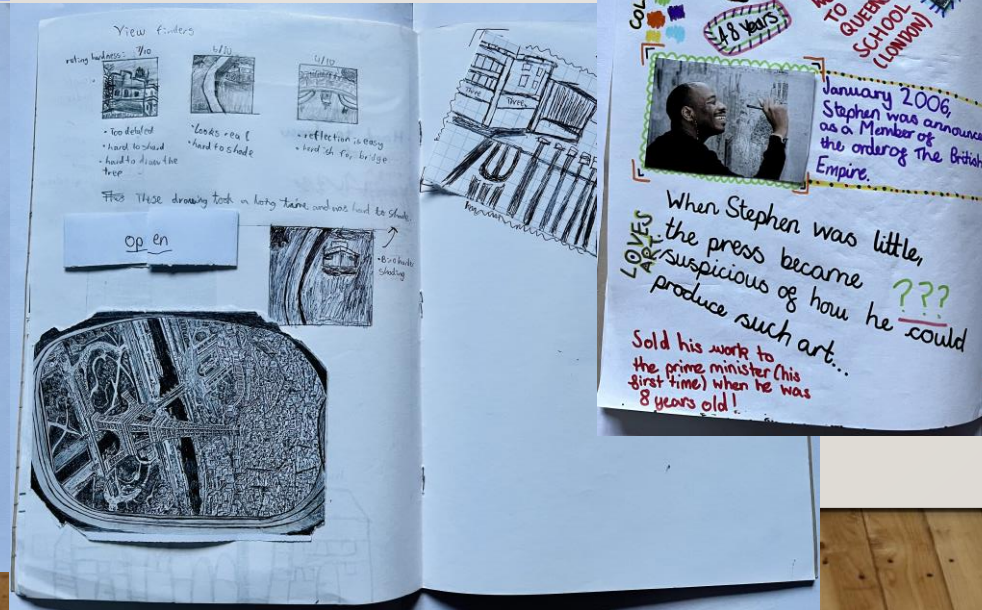 View finders
rating hardness: 7/10
6/10
4/10
• Too detaled
• hard to shard
• hard to draw the
tree
• Looks real
• hard to shade
• reflection is easy
• hard ish for bridge
These drawing took a long time and was hard to shade.
open
shading
Three
Three
COL
48 Years
TO
QUEENS
SCHOOL
(LONDON)
January 2006,
Stephen was announce
as a Member of
the order of The British
Empire.
LOVES
ART
When Stephen was little,
the press became
suspicious of how he could
???
produce such art...
Sold his work to
the prime minister (his
first time) when he was
8 years old!